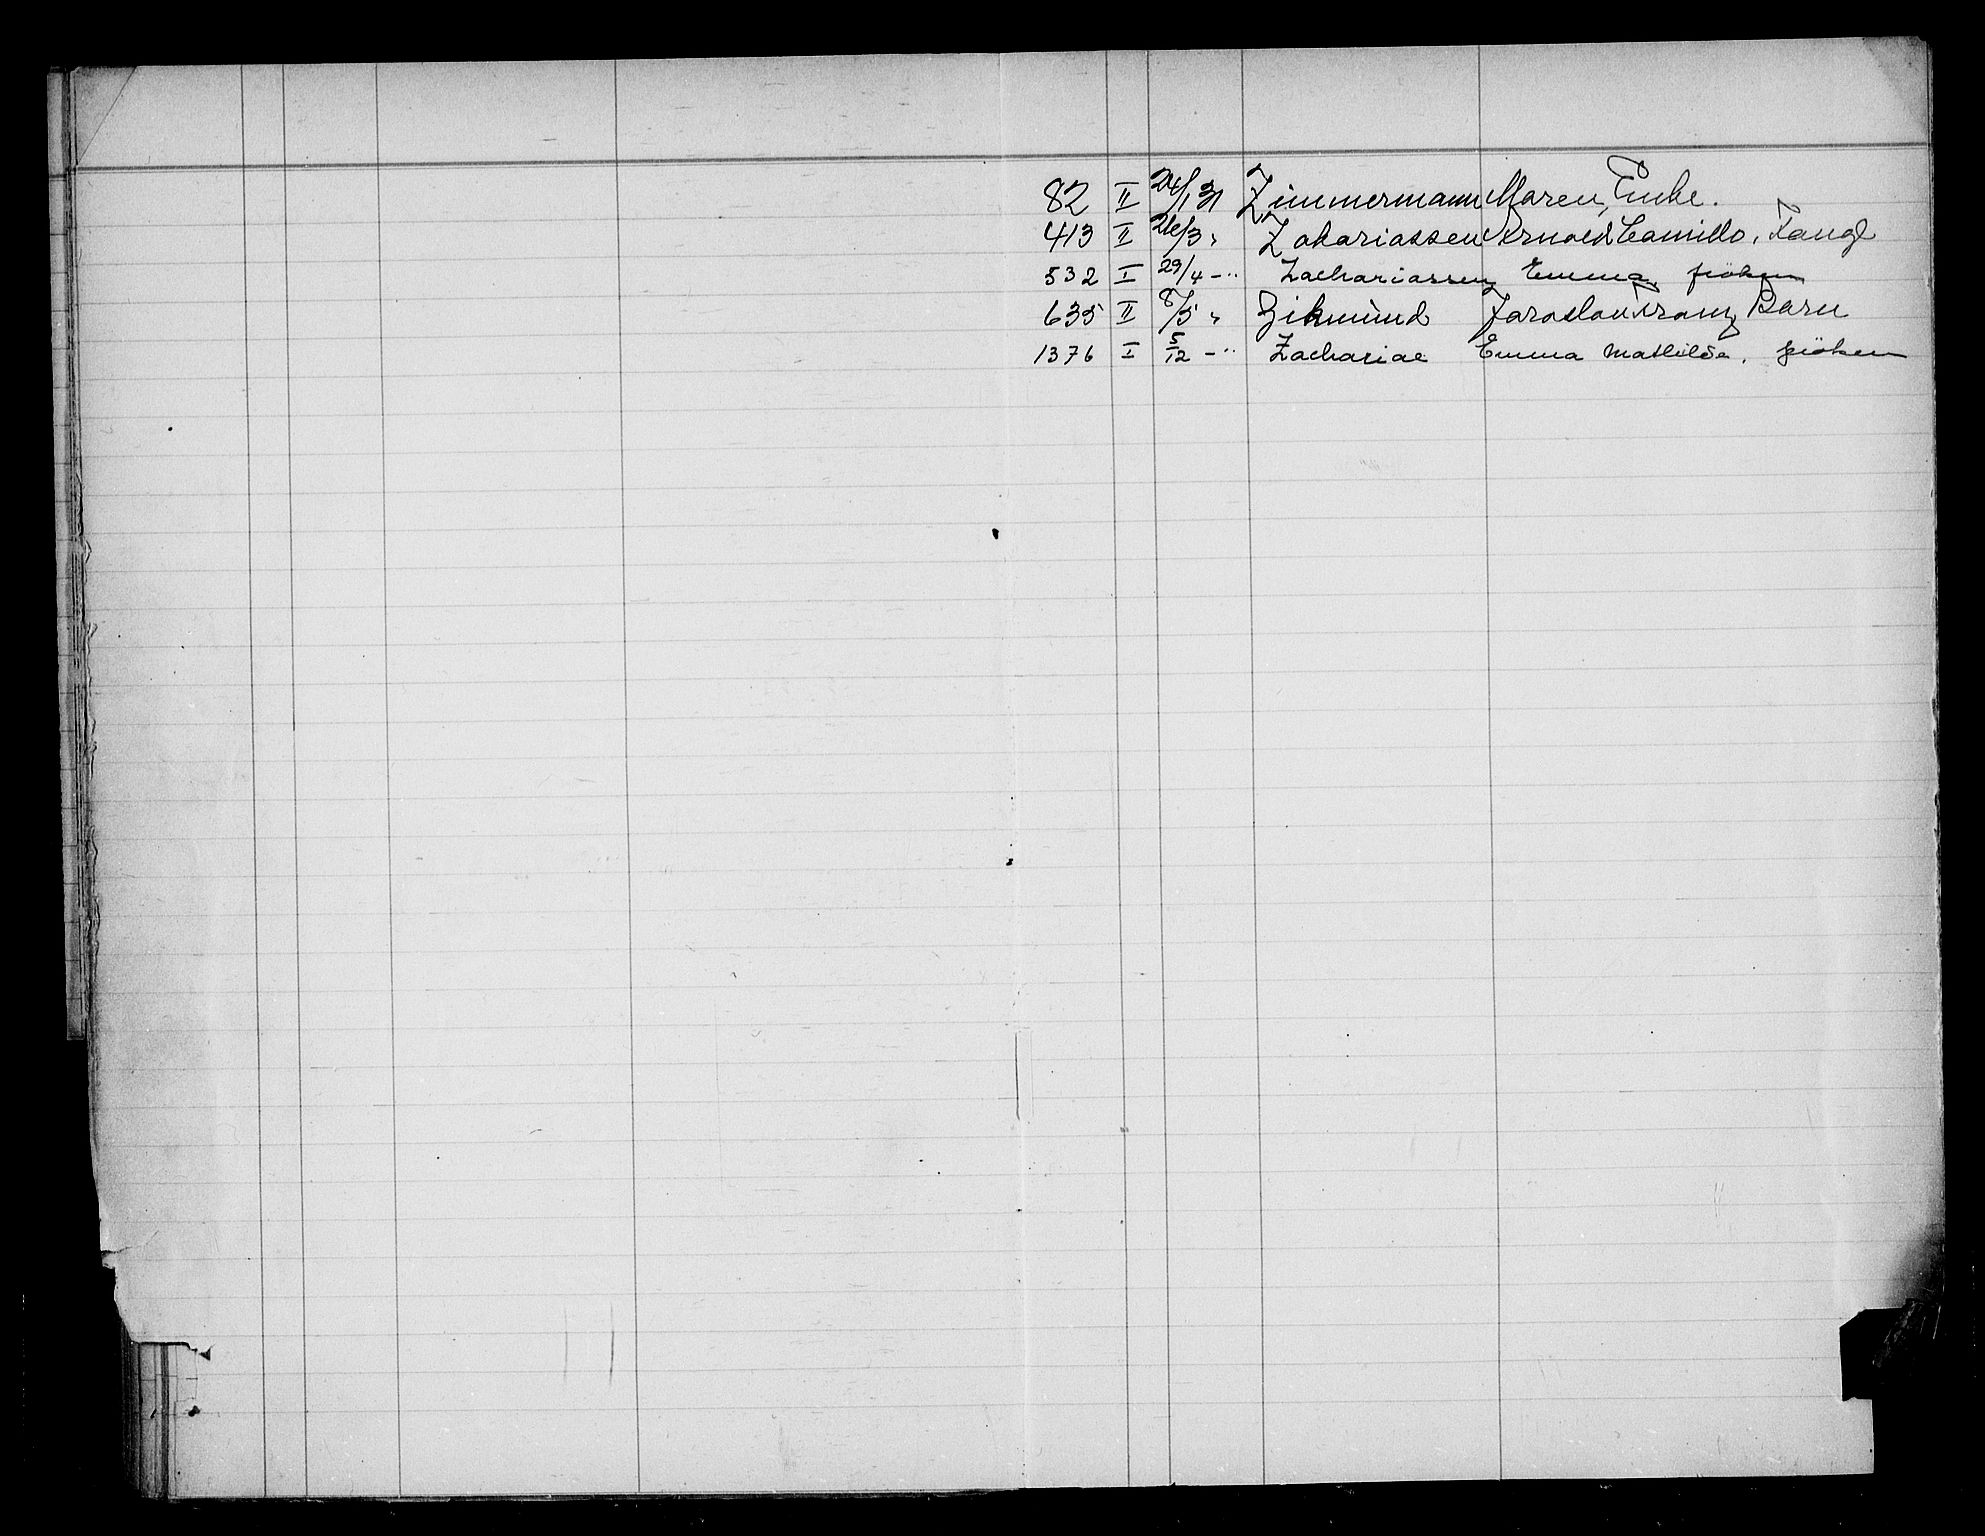 82 II 24/1 31 Zimmermann Maren, Enke.
413 II 26/3 " Zakariassen Arnold Camillo, Fange
532 I 29/4 -" Zachariassen Emma, frøken
635 II 8/5 " Zikmund Jaroslav Franz Barn
1376 I 5/12 -" Zachariae Emma Mathilde, frøken